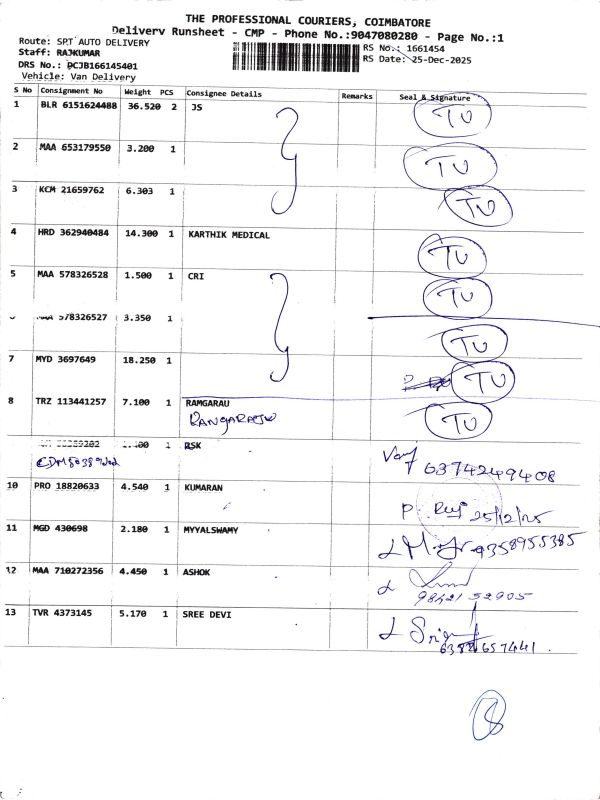 THE PROFESSIONAL COURIERS, COIMBATORE
Delivery Runsheet - CMP - Phone No.:9047080280 - Page No.:1
Route: SPT AUTO DELIVERY
RS No.: 1661454
Staff: RAJKUMAR
RS Date: 25-Dec-2025
DRS No.: PCJB166145401
Vehicle: Van Delivery
S No Consignment No Weight PCS Consignee Details Remarks Seal & Signature
1 BLR 6151624488 36.520 2 JS TU
2 MAA 653179550 3.200 1 TU
3 KCM 21659762 6.303 1 TU
4 HRD 362940484 14.300 1 KARTHIK MEDICAL TU
5 MAA 578326528 1.500 1 CRI TU
578326527 3.350 1 TU
7 MYD 3697649 18.250 1 TU
8 TRZ 113441257 7.100 1 RAMGARAU TU
RANGARAJU
1 RSK
6374249408
10 PRO 18820633 4.540 1 KUMARAN
25/12/25
11 MGD 430698 2.180 1 MYYALSWAMY
9358955385
12 MAA 710272356 4.450 1 ASHOK
98421 52905
13 TVR 4373145 5.170 1 SREE DEVI